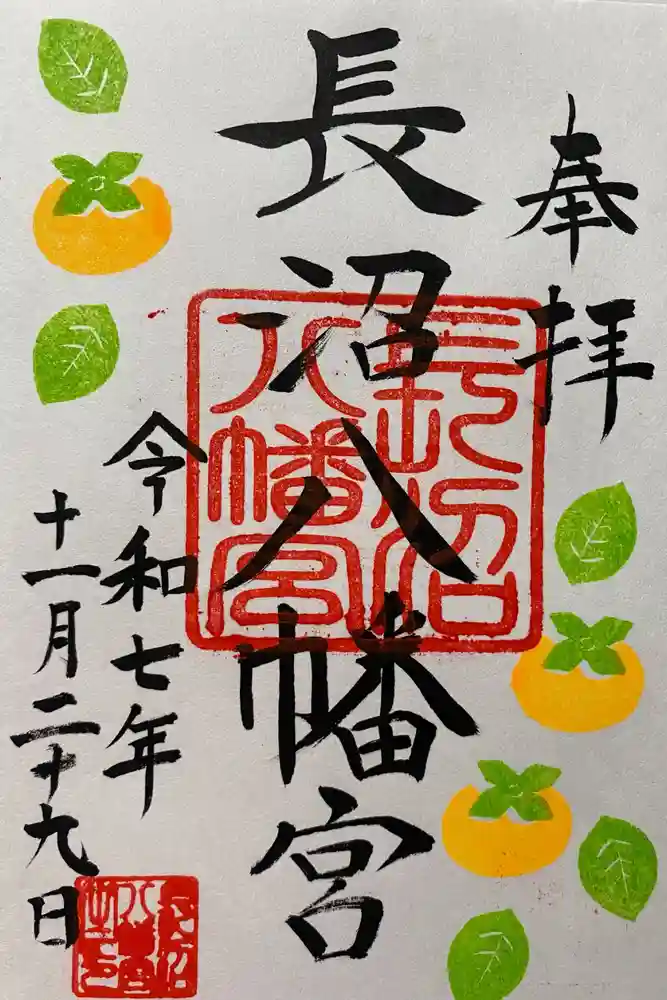 奉拝
長沼八幡宮
長沼
八幡宮
令和七年
十一月二十九日